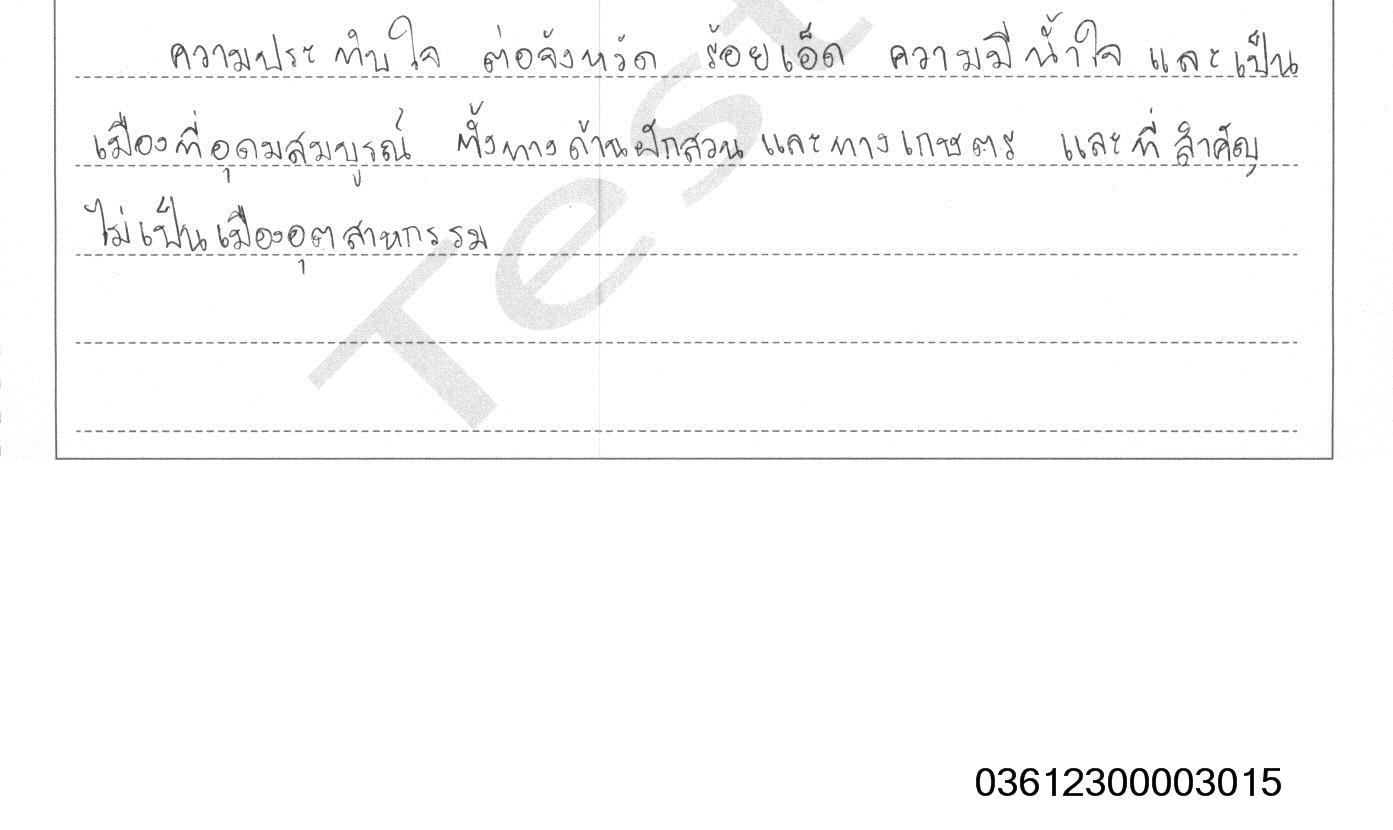 ความประทับใจ ต่อจังหวัด ร้อยเอ็ด ความมีน้ำใจ และเป็น
เมืองที่อุดมสมบูรณ์ ทั้งทางด้านผักสวน และทางเกษตร และที่สำคัญ
ไม่เป็นเมืองอุตสาหกรรม
Test
03612300003015